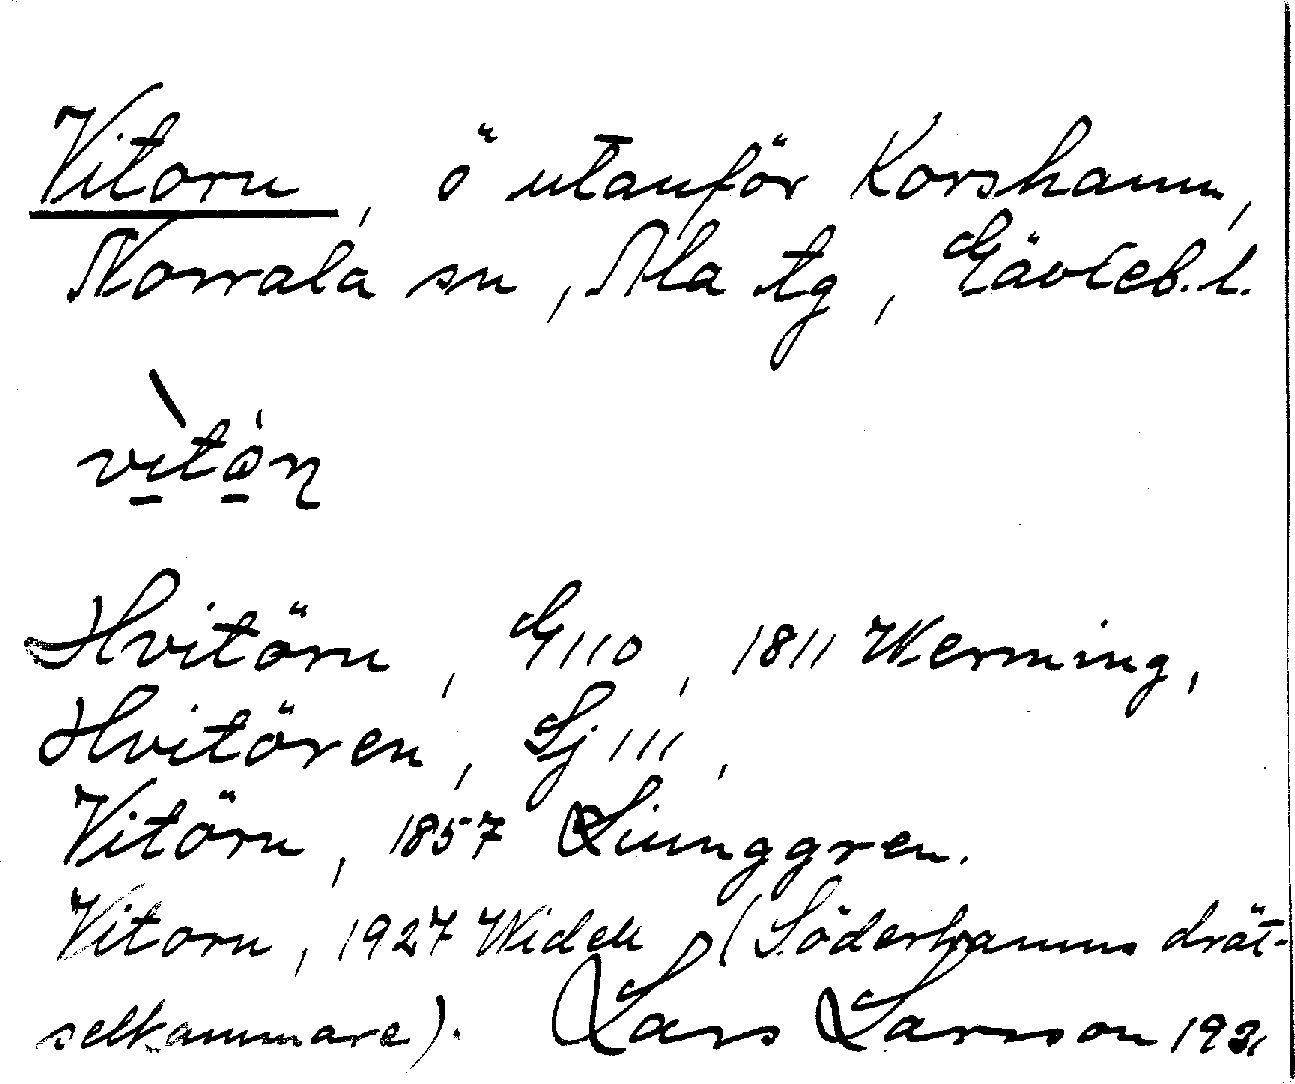 Vitorn, ö utanför Korshamn,
Norrala sn, Ala tg, Gävleb. l.
vìtǫ̀ɳ
Hvitörn, G 110, 1811 Werming,
Hvitören, Sj 111,
Vitörn, 1857 Ljunggren.
Vitorn, 1927 Widell (Söderhamns drät-
selkammare). Lars Larsson 1931